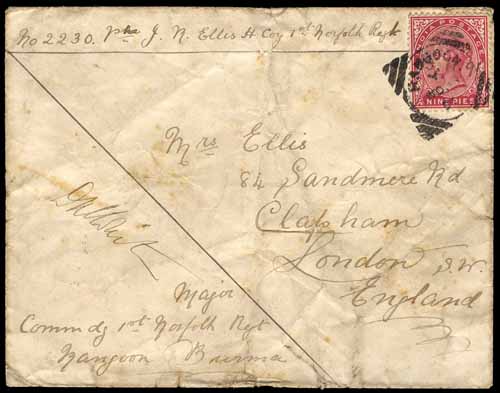 No 2230. Pte J. N. Ellis H Coy 1st Norfolk Regt
INDIA POSTAGE
NINE PIES
RANGOON
Mrs Ellis
84 Sandmere Rd
Clapham
London S.W.
England
Major
Commdg 1st Norfolk Regt
Rangoon Burma